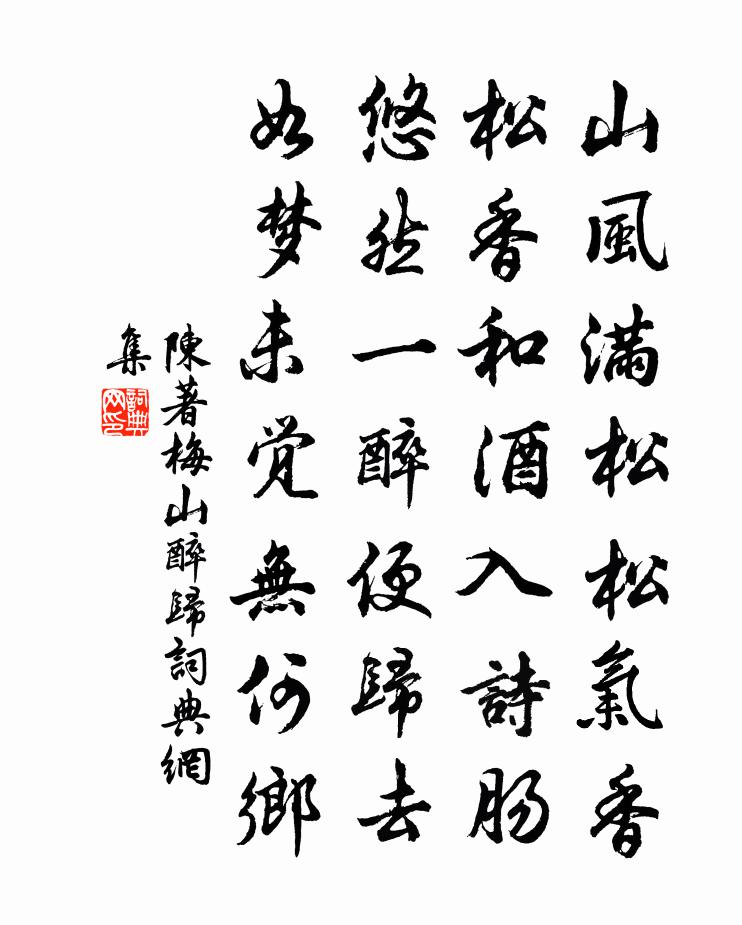 山風滿松松氣香
松香和酒入詩肠
悠然一醉便歸去
如梦未觉無何鄉
陳著梅山醉歸詞典網
集
詞典
网印